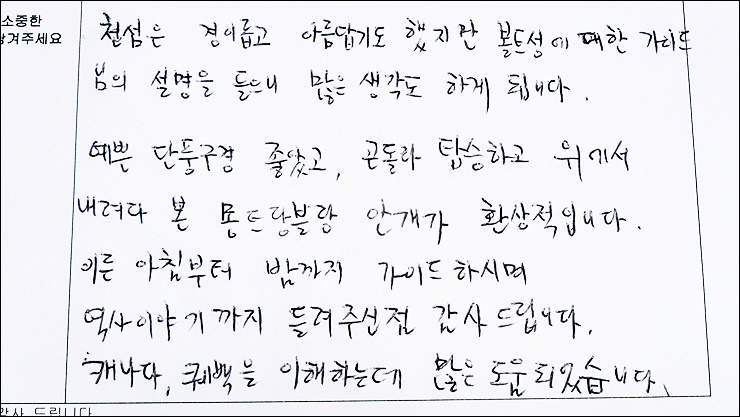 소중한
남겨주세요
천섬은 경이롭고 아름답기도 했지만 볼트성에 대한 가이드
님의 설명을 들으니 많은 생각도 하게 됩니다.
예쁜 단풍구경 좋았고, 곤돌라 탑승하고 위에서
내려다 본 몽트랑블랑 안개가 환상적입니다.
이른 아침부터 밤까지 가이드하시며
역사이야기까지 들려주신점 감사드립니다.
캐나다, 퀘백을 이해하는데 많은 도움되었습니다.
감사 드립니다